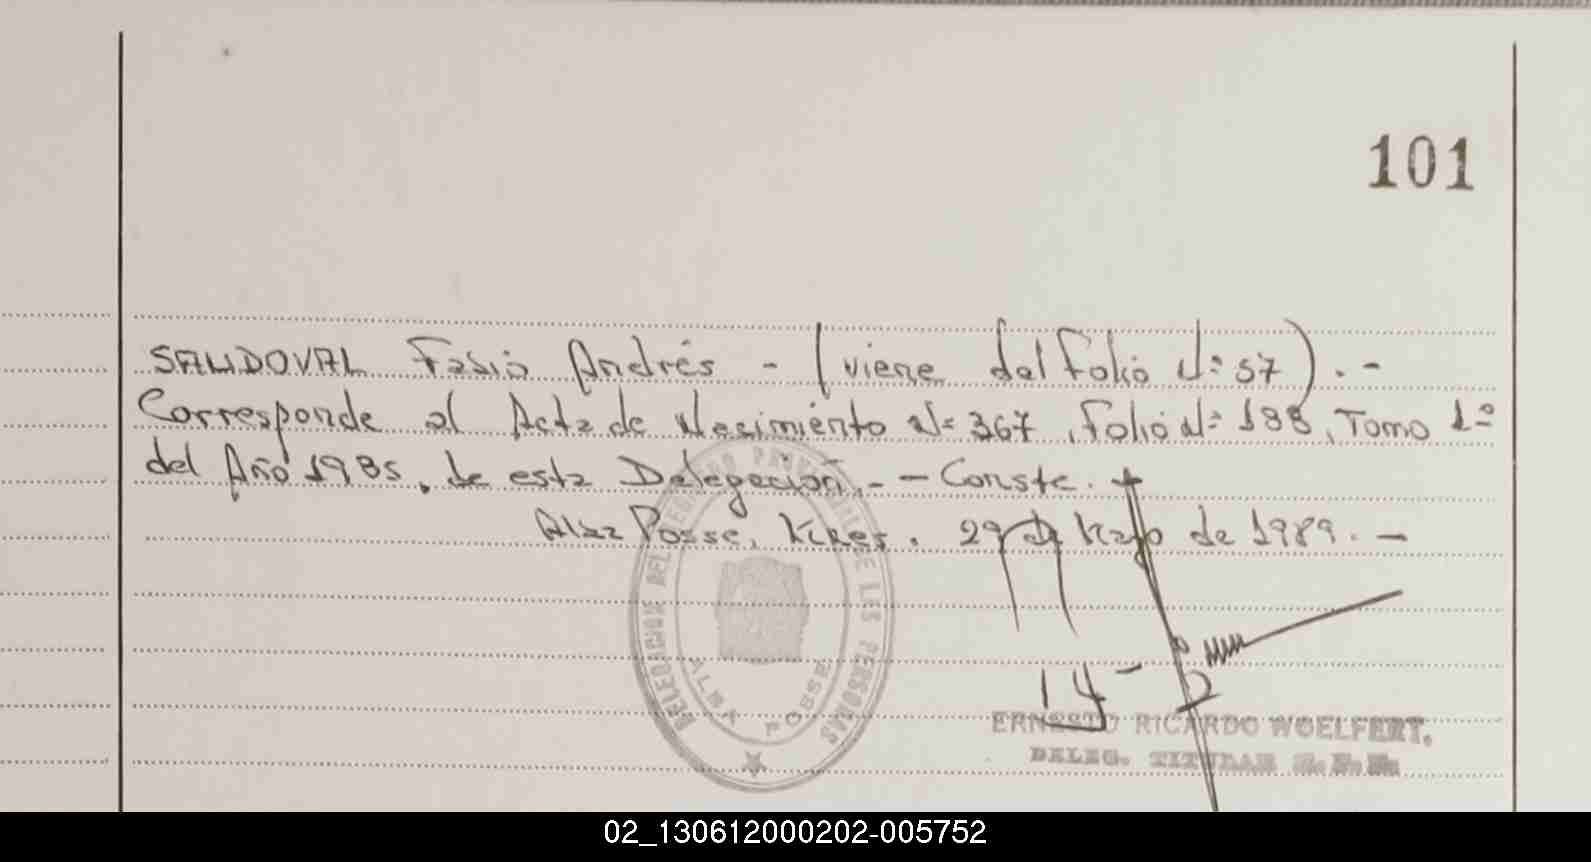 101
SANDOVAL Fabio Andrés - (viene del folio Nº 57). -
Corresponde al Acta de Nacimiento Nº 367, folio Nº 188, Tomo 1º
del Año 1985, de esta Delegación. - - Conste. -
Alba Posse, Mnes. 29 de Mayo de 1989. -
DELEGACION DEL REGISTRO PROVINCIAL DE LES PERSONAS
ALBA POSSE
ERNESTO RICARDO WOELFERT.
DELEG. TITULAR
02_130612000202-005752